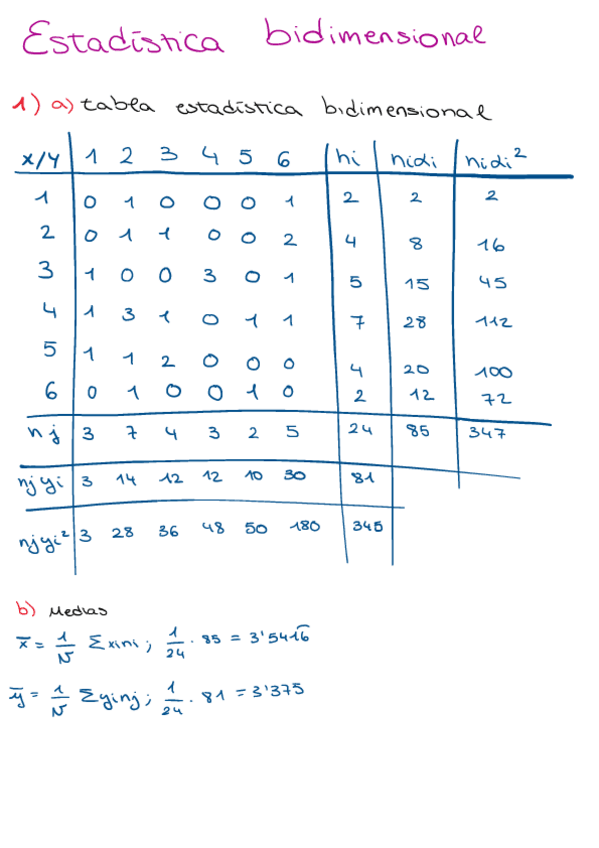 Estadística bidimensional
1) a) tabla estadística bidimensional
x/y 1 2 3 4 5 6 hi nidi nidi²
1 0 1 0 0 0 1 2 2 2
2 0 1 1 0 0 2 4 8 16
3 1 0 0 3 0 1 5 15 45
4 1 3 1 0 1 1 7 28 112
5 1 1 2 0 0 0 4 20 100
6 0 1 0 0 1 0 2 12 72
nj 3 7 4 3 2 5 24 85 347
njyi 3 14 12 12 10 30 81
njyi² 3 28 36 48 50 180 345
b) Medias
x̄ = 1/N Σxini ; 1/24 · 85 = 3'5416̄
ȳ = 1/N Σyinj ; 1/24 · 81 = 3'375